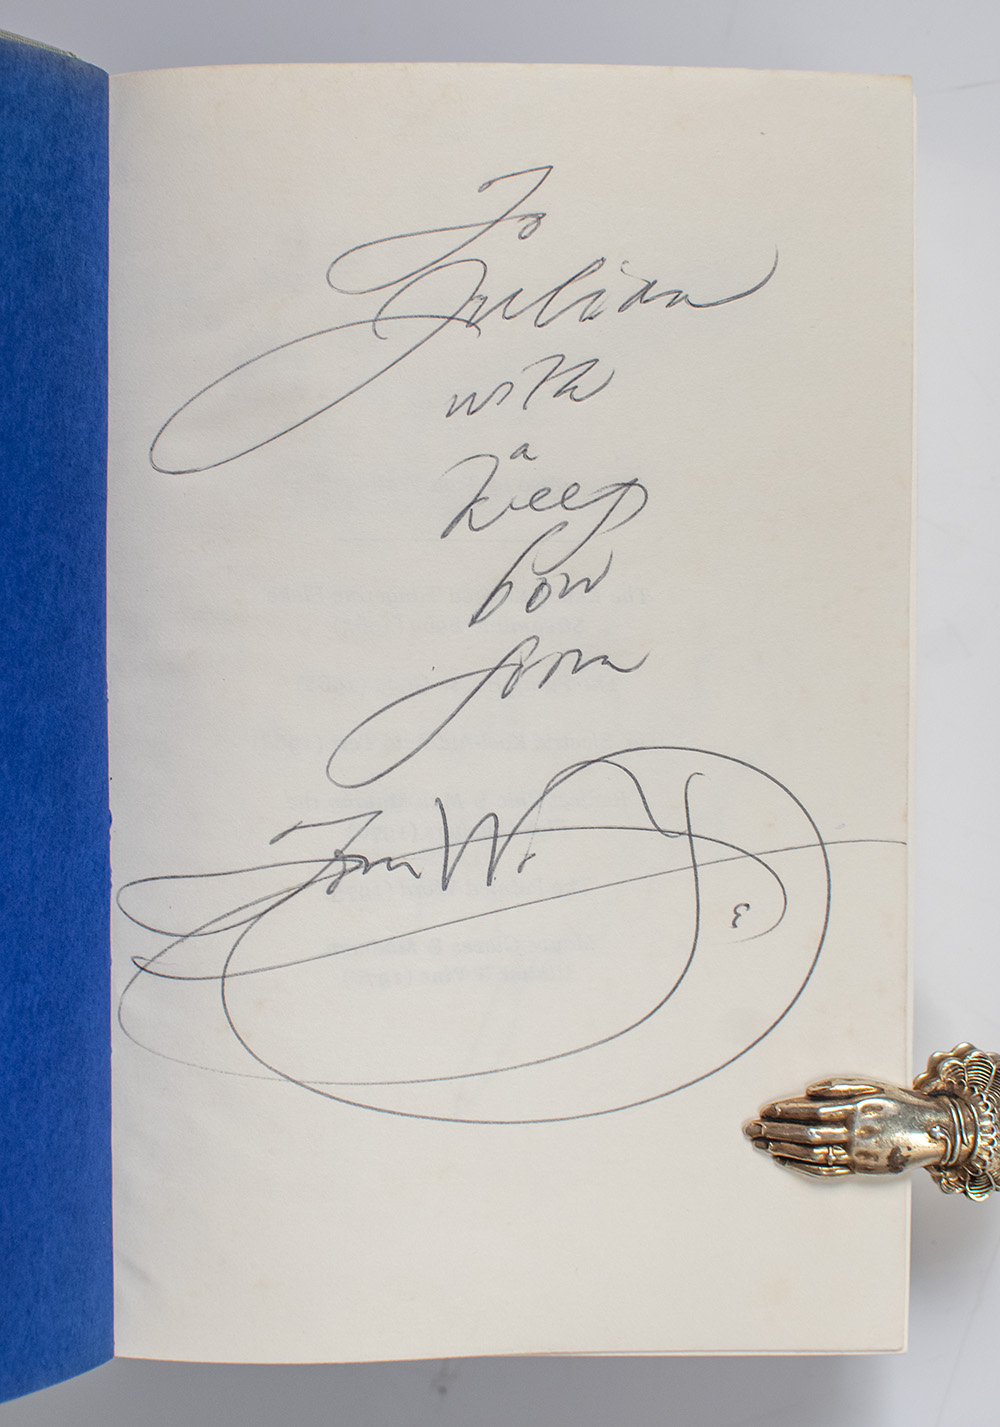 To
Julian
with
a
deep
bow
from
Tom W.